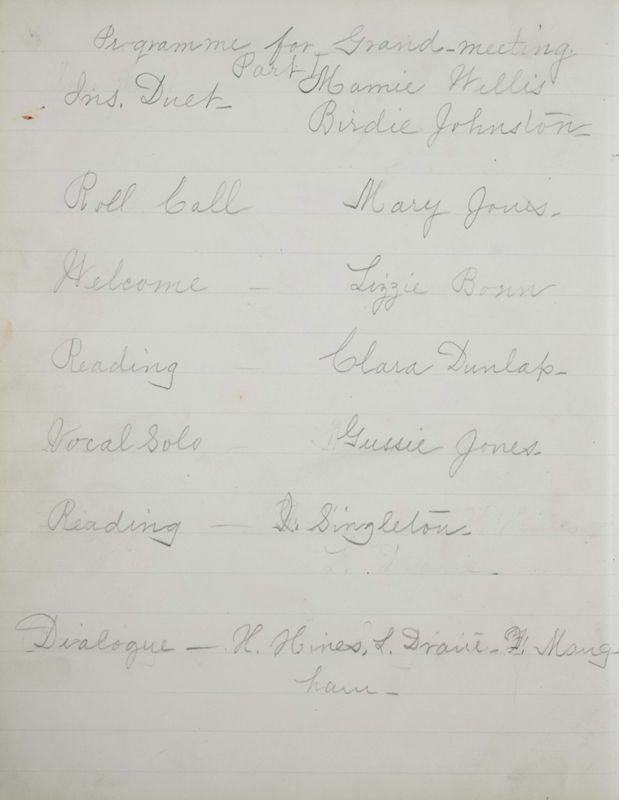 Programme for Grand-meeting
Part I
Ins. Duet - Mamie Willis
Birdie Johnston -
Roll Call Mary Jones -
Welcome - Lizzie Bonn
Reading - Clara Dunlap -
Vocal Solo - Gussie Jones -
Reading - S. Singleton -
Dialogue - H. Hines, L. Drane - F. Mang-
ham -